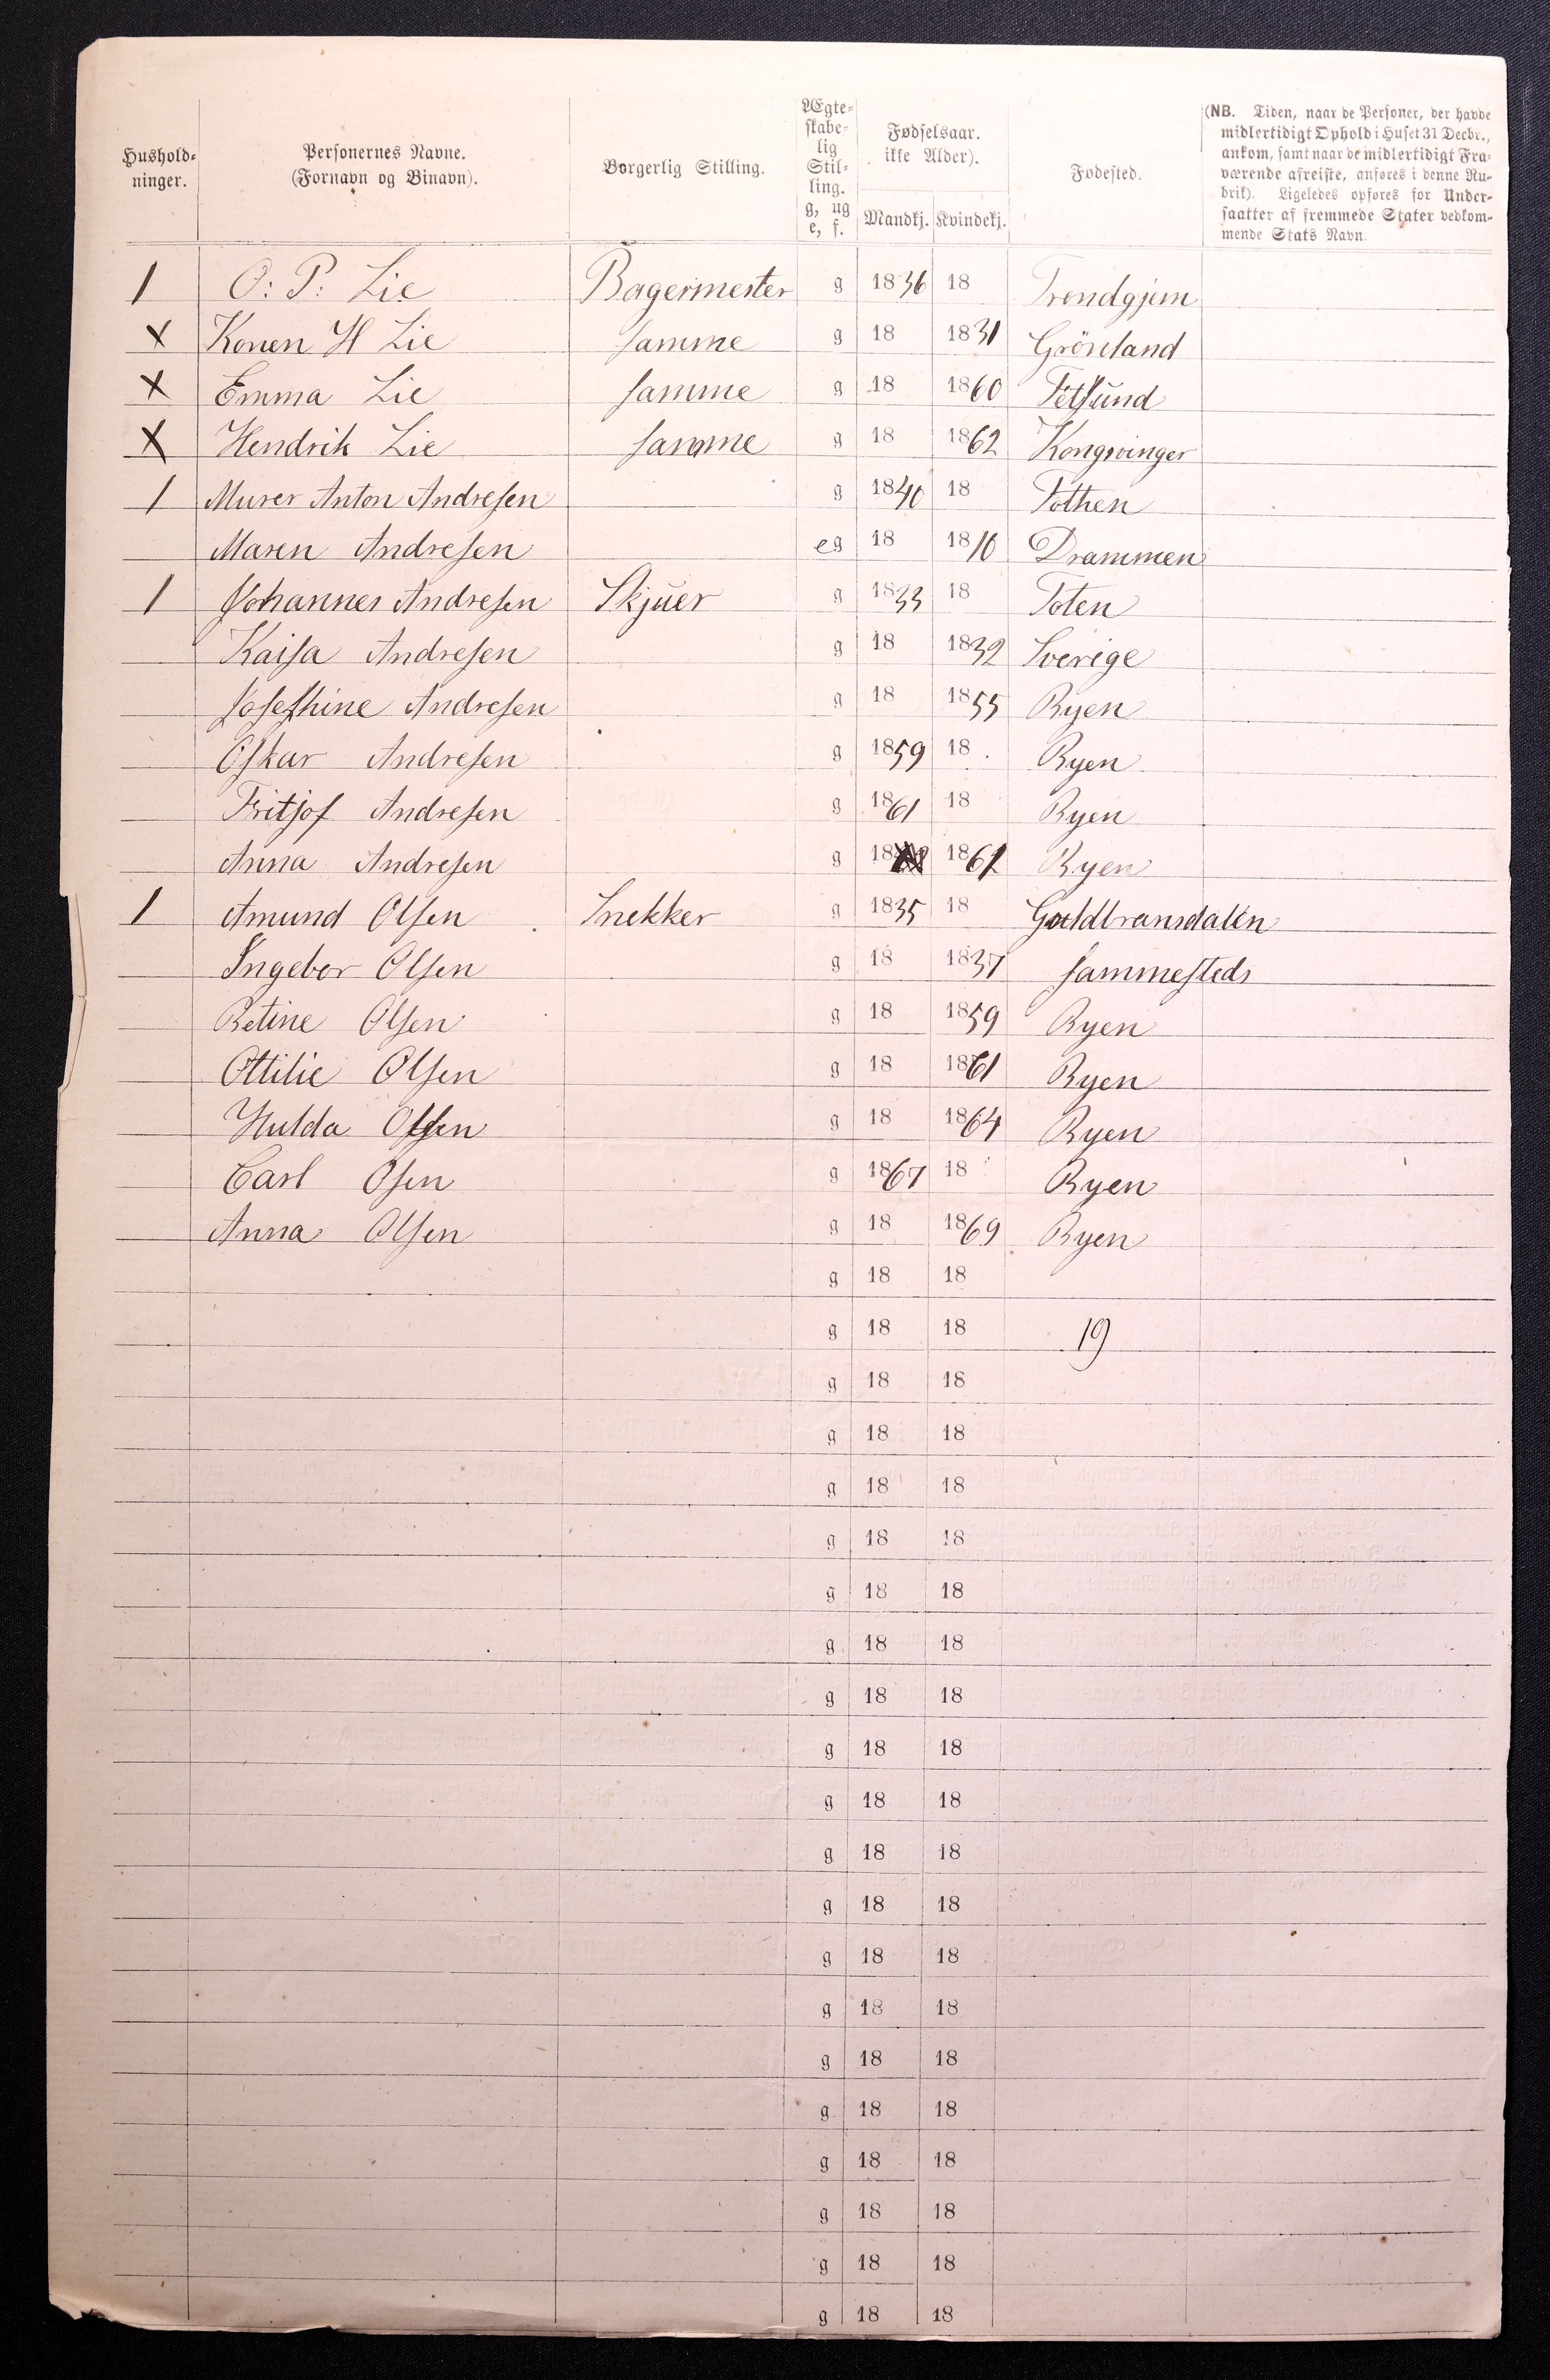 Hushold-
ninger.
Personernes Navne.
(Fornavn og Binavn).
Borgerlig Stilling.
Ægte-
skabe-
lig
Stil-
ling.
g, ug
e, f.
Fødselsaar.
ikke Alder).
Mandkj. Kvindekj.
Fødested.
(NB. Tiden, naar de Personer, der havde
midlertidigt Ophold i Huset 31 Decbr.,
ankom, samt naar de midlertidigt Fra-
værende afreiste, anføres i denne Ru-
brik). Ligeledes opføres for Under-
saatter af fremmede Stater vedkom-
mende Stats Navn.
1 O: P: Lie Bagermester g 1836 18 Trondgjem
X Konen H Lie samme g 18 1831 Grönland
X Emma Lie samme g 18 1860 Fetsund
X Hendrik Lie samme g 18 1862 Kongvinger
1 Murer Anton Andresen g 1840 18 Tothen
Maren Andresen eg 18 1810 Drammen
1 Johannes Andresen Skjuer g 1833 18 Toten
Kaisa Andresen g 18 1832 Sverige
Josephine Andresen g 18 1855 Ryen
Oskar Andresen g 1859 18 Ryen
Fritjof Andresen g 1861 18 Ryen
Anna Andresen g 18 186 Ryen
1 Amund Olsen Snekker g 1835 18 Guldbransdalen
Ingebor Olsen g 18 1837 sammesteds
Betine Olsen g 18 1859 Ryen
Ottilie Olsen g 18 1861 Ryen
Hulda Olsen g 18 1864 Ryen
Carl Osen g 1867 18 Ryen
Anna Olsen g 18 1869 Ryen
g 18 18
g 18 18 19
g 18 18
g 18 18
g 18 18
g 18 18
g 18 18
g 18 18
g 18 18
g 18 18
g 18 18
g 18 18
g 18 18
g 18 18
g 18 18
g 18 18
g 18 18
g 18 18
g 18 18
g 18 18
g 18 18